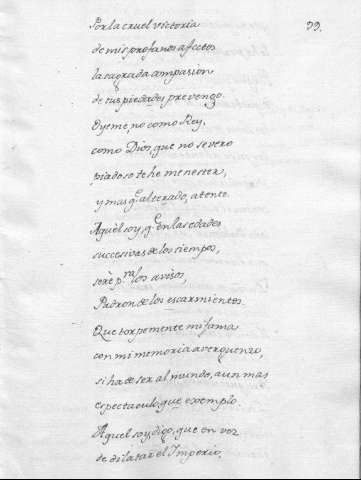 99.
Por la cruel victoria
de mis profanos afectos
la sagrada compasion
de tus piedades prevengo.
Oyeme, no como Rey,
como Dios, que no severo
piadoso te he menester,
y mas q.e alterado, atento.
Aquèl soy, q.e en las edades
successivas de los tiempos,
serè p.ra los avisos,
Padron de los escarmientos.
Que torpemente mi fama
con mi memoria averguenzo,
si ha de ser al mundo, aun mas
espectaculo, que exemplo.
Aquel soy, digo, que en vez
te dilatar el Imperio,